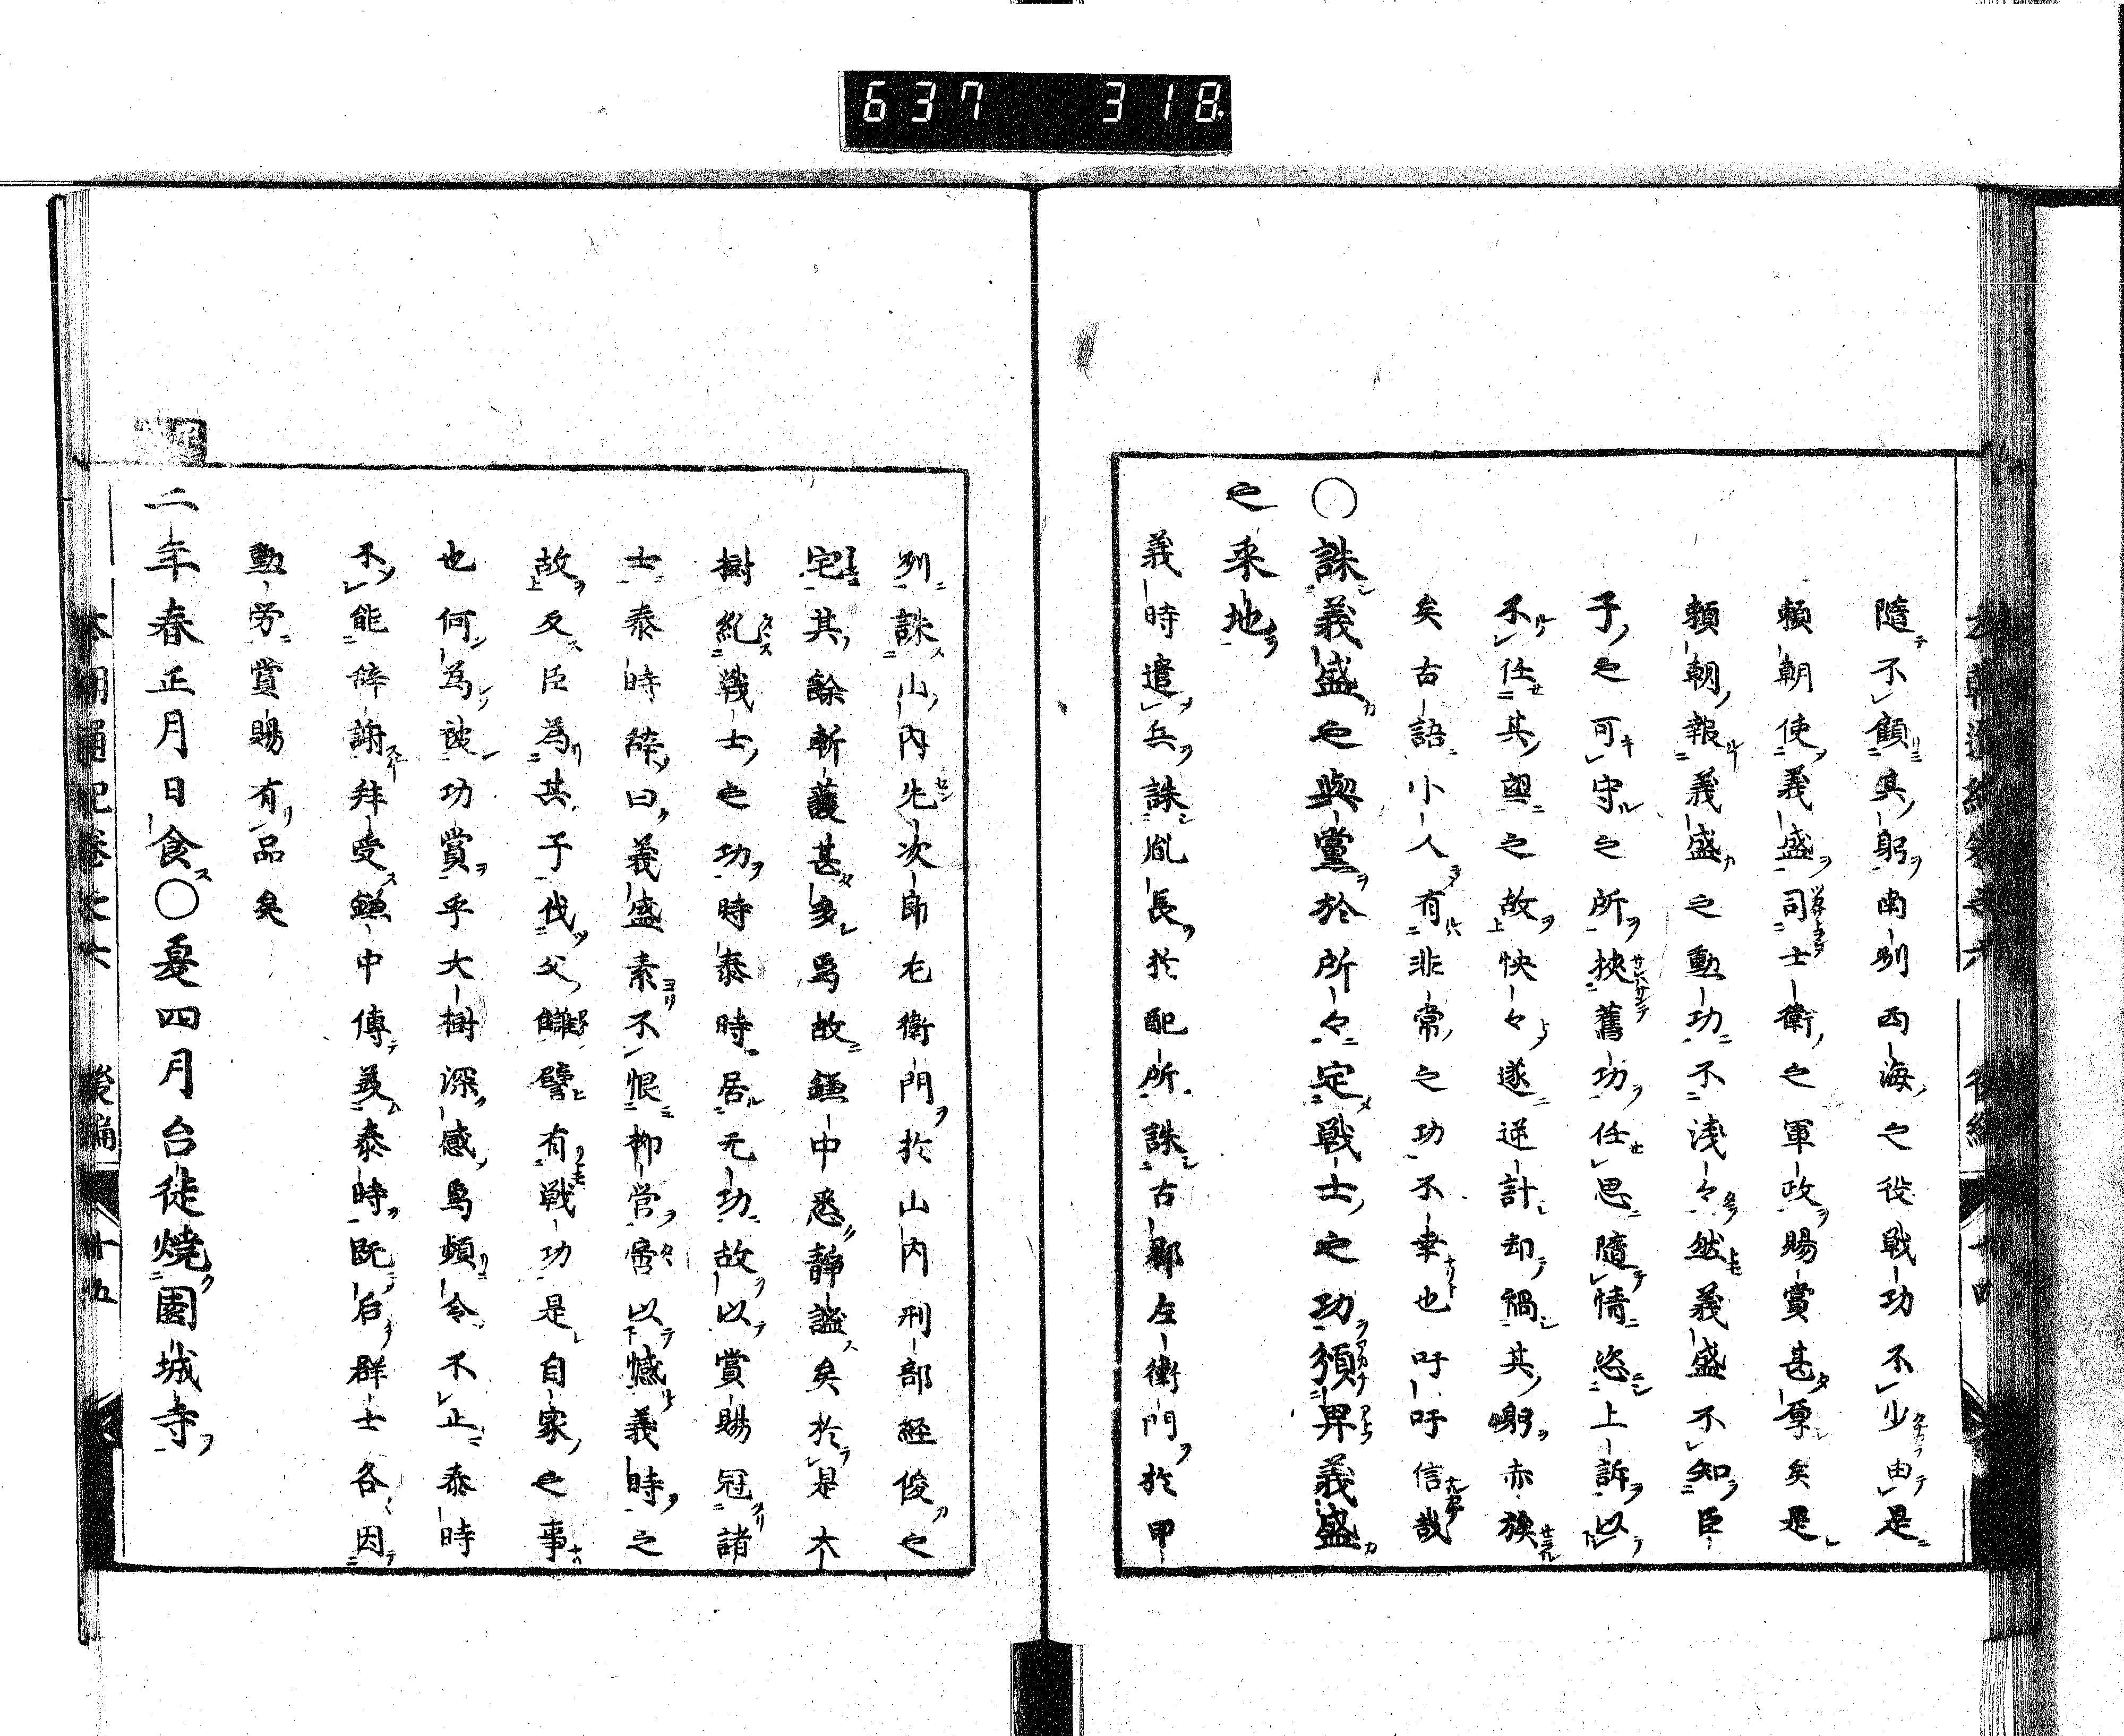 637 318
隨不顧其躬南別西海之役戰功不少由是
頼朝使義盛司士衛之軍政賜賞甚厚矣是
頼朝報義盛之勳功不淺々然義盛不知臣
子之可守之所挾舊功任思隨情恣上訴以
不任其望之故怏々遂逆計却禍其躬赤族
矣古語小人有非常之功不幸也吁吁信哉
〇誅義盛之與黨於所々定戰士之功頒畀義盛
之采地
義時遣兵誅胤長於配所誅古郡左衛門於甲
州誅山内先次郎左衛門於山内刑部経俊之
宅其餘斬護甚多焉故鎌中悉靜謐矣於是大
樹糺戰士之功時泰時居元功故以賞賜冠諸
士泰時辞曰義盛素不恨柳営啻以憾義時之
故反臣為其子伐父讎譬有戰功是自家之事
也何為被功賞乎大樹深感焉頻令不止泰時
不能辞謝拜受鎌中傳美泰時既后群士各因
勳労賞賜有品矣
二年春正月日食〇夏四月台徒燒園城寺
本朝通紀巻之六 後編 十五